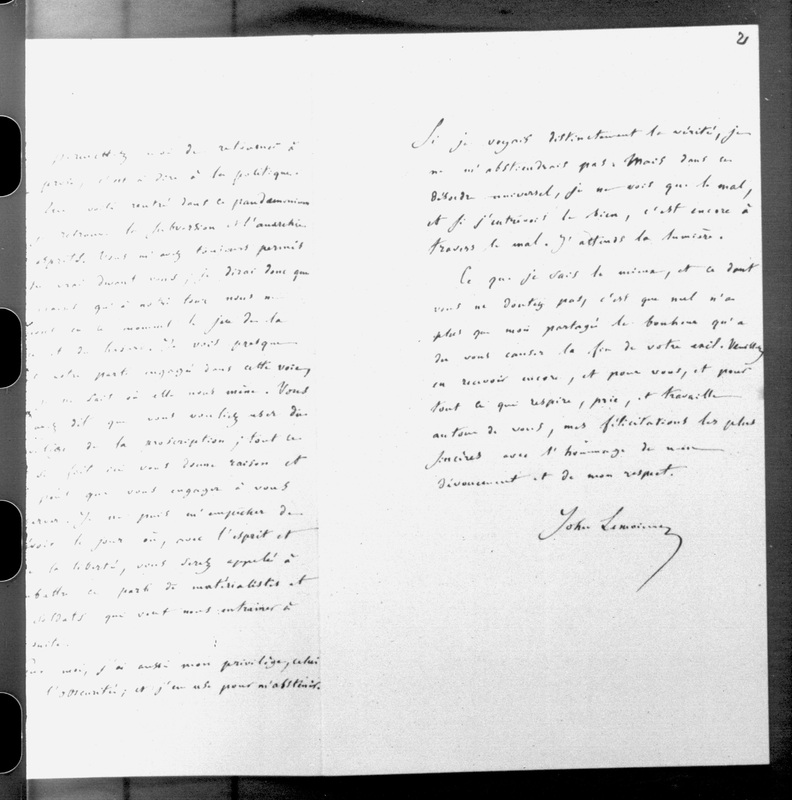 2
permettez moi de retourner à
prose, c'est à dire à la politique.
voilà rentré dans ce pandaemonium
retrouve la subversion et l'anarchie
esprits. Vous m'avez toujours permis
vrai devant vous; je dirai donc que
qu'à notre tour nous
en ce moment le jeu de la
et du hasard. Je vois presque
notre parti engagé dans cette voie,
ne sait où elle nous mène. Vous
dit que vous vouliez user du
de la proscription; tout ce
se fait ici vous donne raison et
peut que vous engager à vous
Je ne puis m'empêcher de
le jour où, avec l'esprit et
la liberté, vous serez appelé à
ce parti de matérialistes et
soldats qui veut nous entrainer à
suite.
moi, j'ai aussi mon privilège, celui
l'obscurité; et j'en use pour m'abstenir.
Si je voyais distinctement la vérité, je
ne m'abstiendrais pas. Mais dans ce
désordre universel, je ne vois que le mal,
et si j'entrevois le bien, c'est encore à
travers le mal. J'attends la lumière.
Ce que je sais le mieux, et ce dont
vous ne doutez pas, c'est que nul n'a
plus que moi partagé le bonheur qu'a
du vous causer la fin de votre exil. Veuillez
en recevoir encore, et pour vous, et pour
tout ce qui respire, prie, et travaille
autour de vous, mes félicitations les plus
sincères avec l'hommage de mon
dévouement et de mon respect.
John Lemoinne